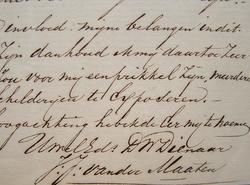 invloed mijne belangen in dit
Zijn dankbaar al mij daartoe zeer
zou voor mij een prikkel zijn, meerdere
schilderijen te exposeren. —
oogachting heb ik de Eer mij te noemen
UwelEds DW Dienaar
J.J. van der Maaten